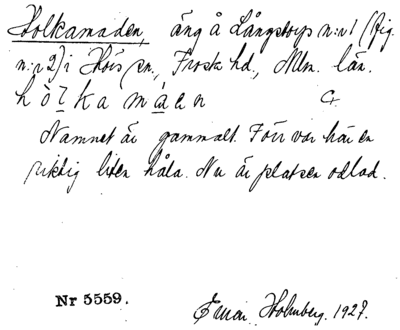 Holkamaden, äng å Långstorps n:r 1 (fig.
n:r 2) i Hörs sn., Frosta hd., Mlm. län.
hòlkamáen Cr.
Namnet är gammalt. Förr var här en
riktig liten håla. Nu är platsen odlad.
Nr 5559. Einar Holmberg. 1927.